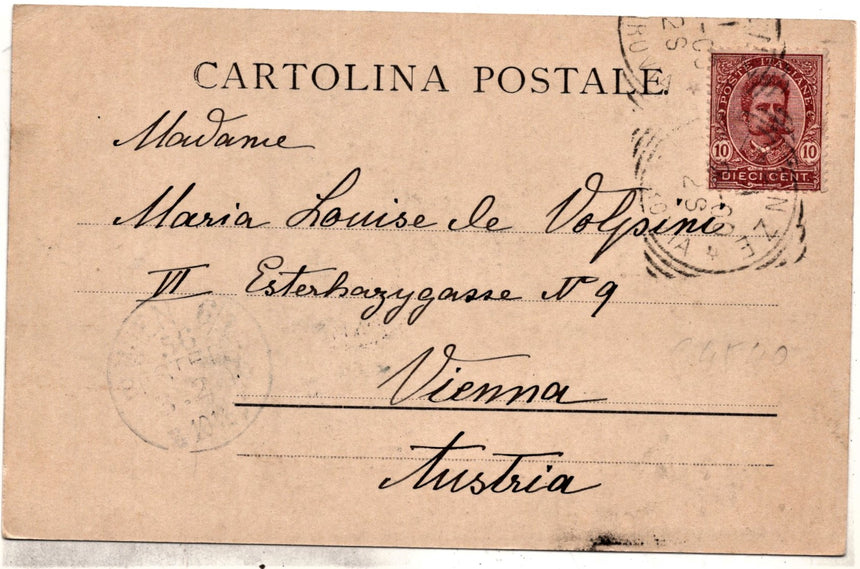 CARTOLINA POSTALE.
POSTE ITALIANE
10 10
DIECI CENT.
Madame
Maria Louise de Volpini
VI Esterhazygasse No 9
Vienna
Austria